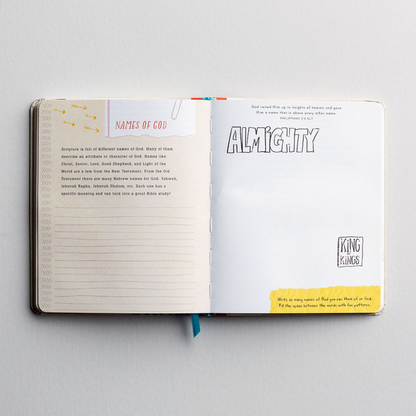 NAMES OF GOD
Scripture is full of different names of God. Many of them
describe an attribute or character of God. Names like
Christ, Savior, Lord, Good Shepherd, and Light of the
World are a few from the New Testament. From the Old
Testament there are many Hebrew names for God. Yahweh,
Jehovah Rapha, Jehovah Shalom, etc. Each one has a
specific meaning and can turn into a great Bible study!
God raised Him up to heights of heaven and gave
Him a name that is above every other name.
PHILIPPIANS 2:9 NLT
ALMIGHTY
KING
of
KINGS
Write as many names of God you can think of or find.
Fill the space between the words with fun patterns.